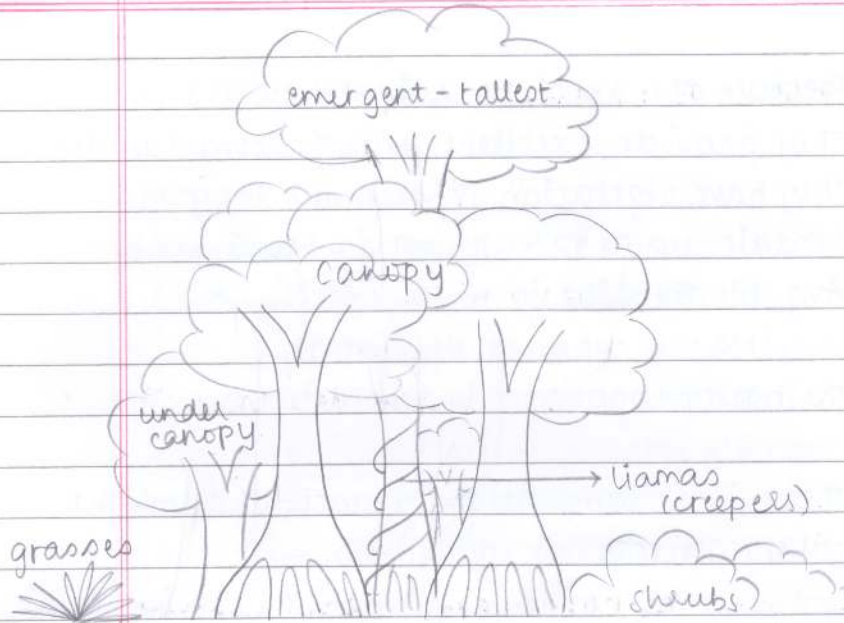 emergent - tallest.
canopy
under
canopy
liamas
(creepers)
grasses
shrubs)